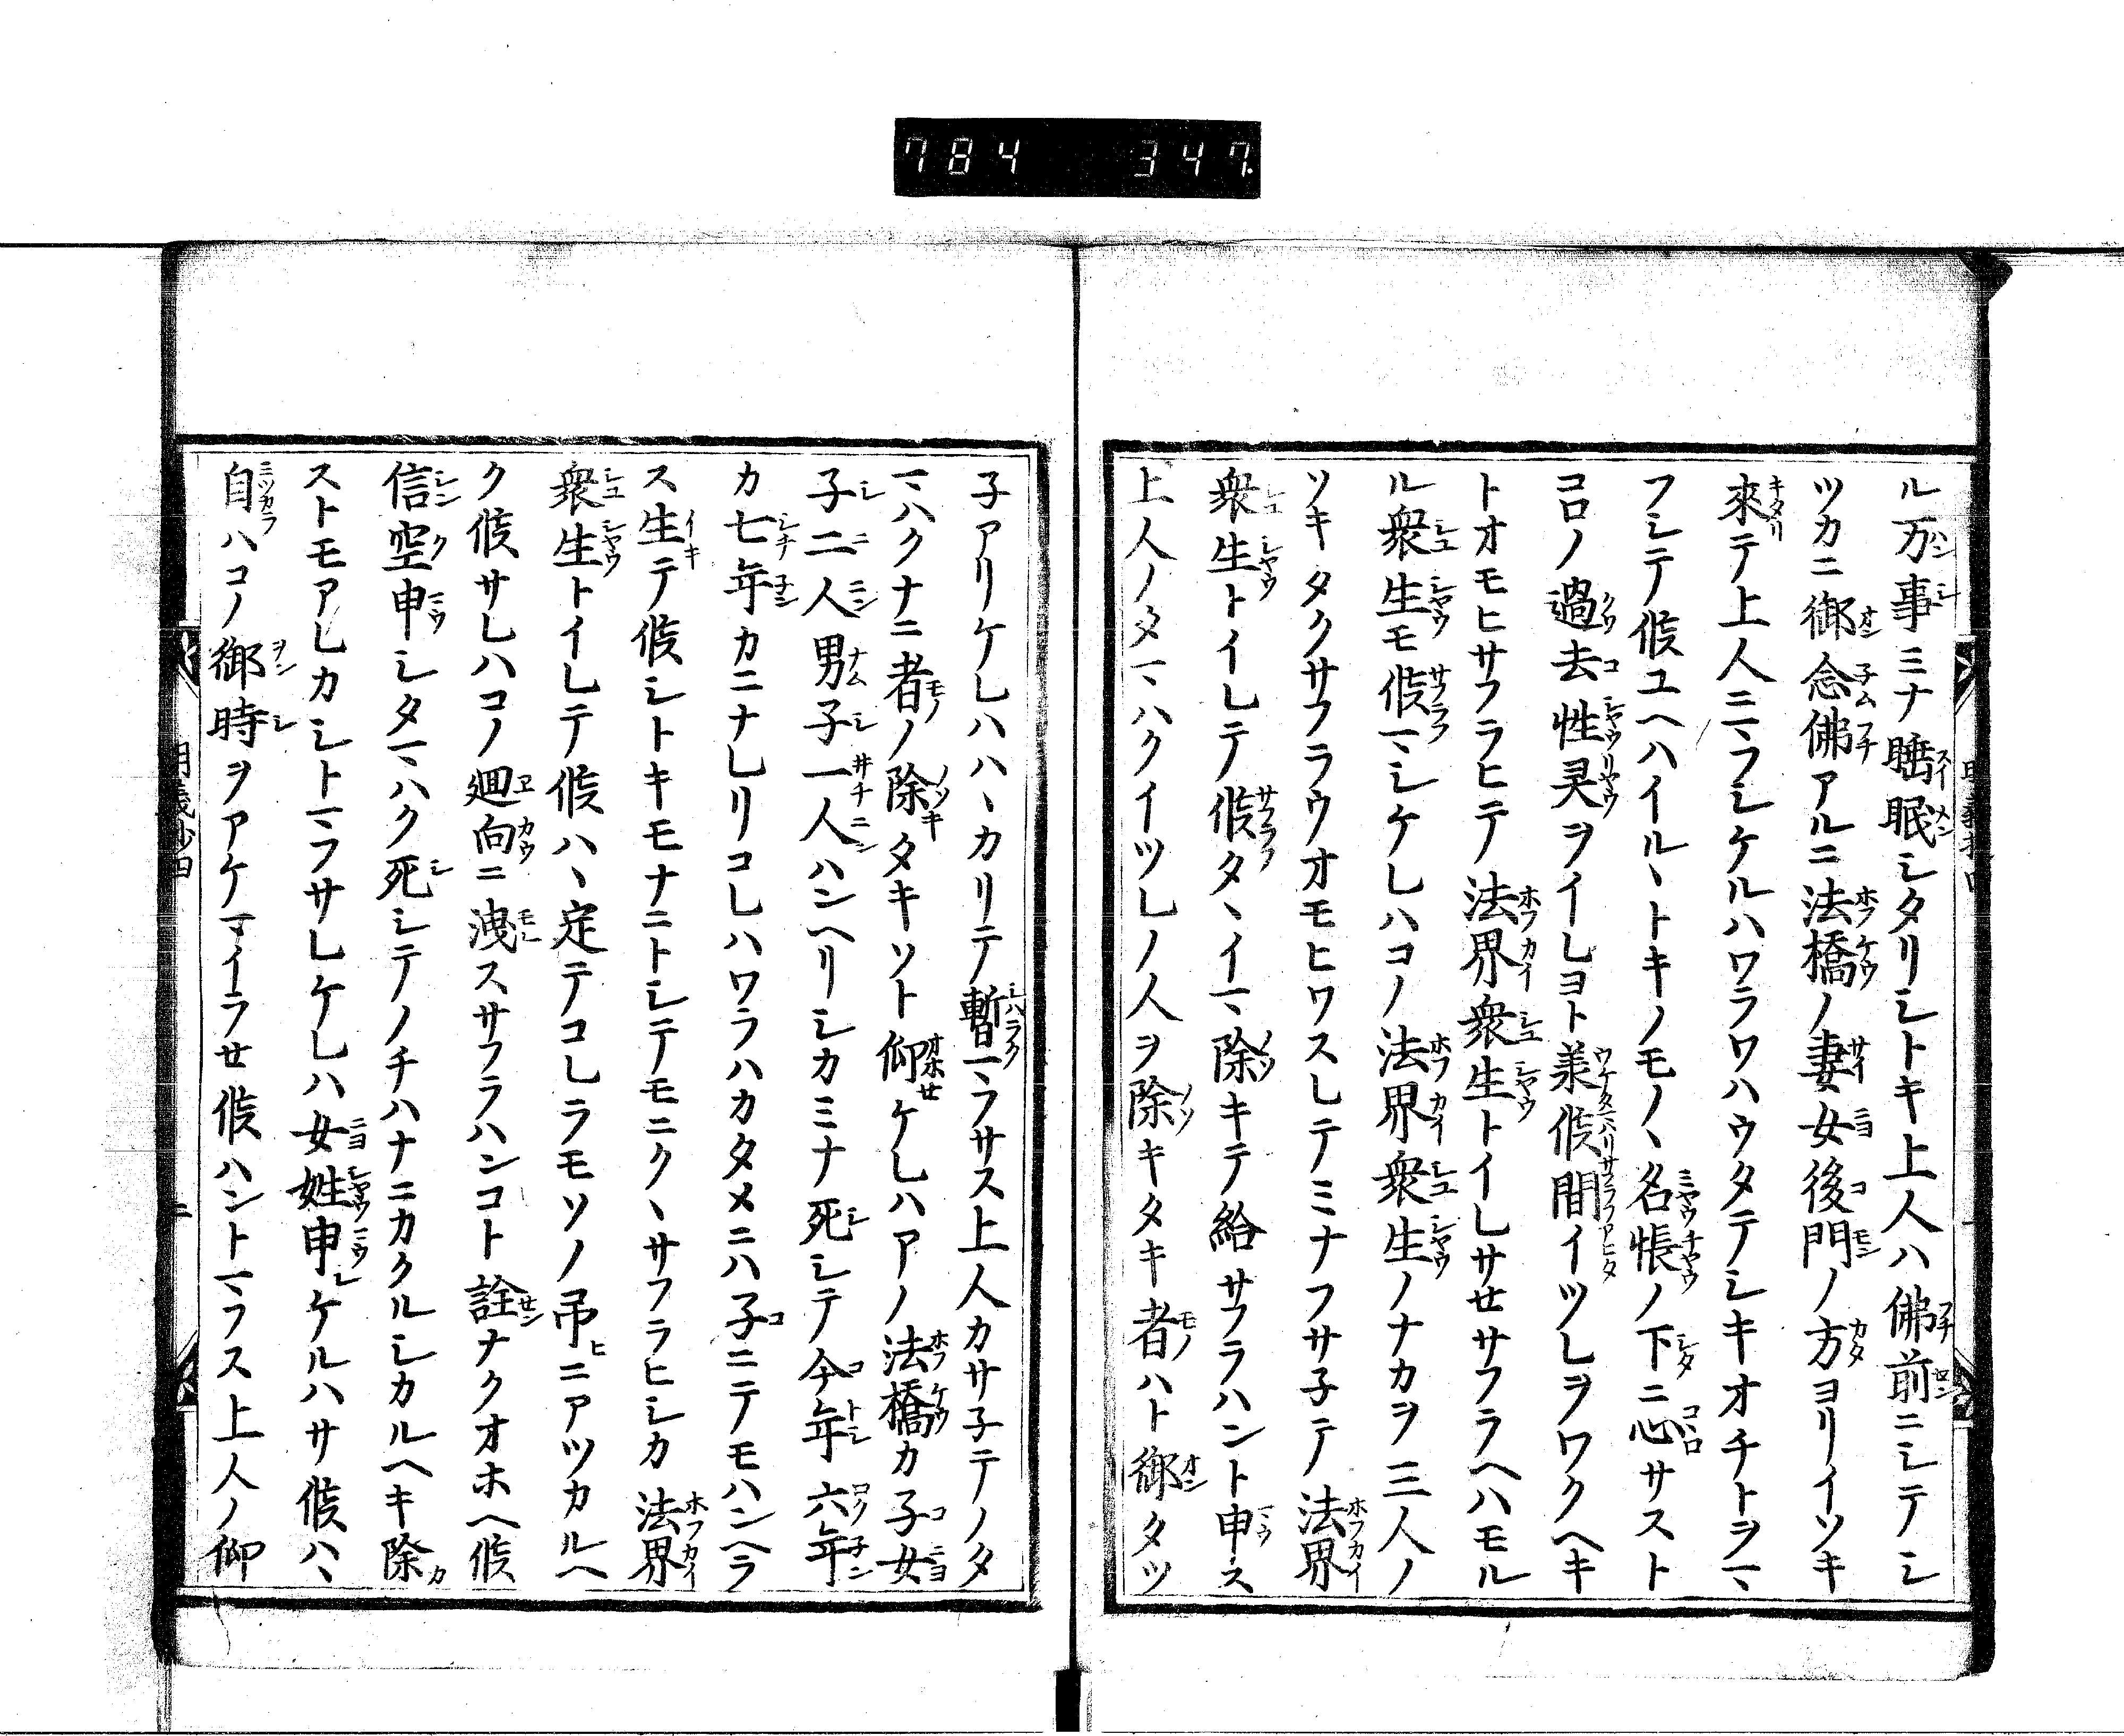 784 347
ル万事ミナ睡眠シタリシトキ上人ハ佛前ニシテシ
ツカニ御念佛アルニ法橋ノ妻女後門ノ方ヨリイソキ
來テ上人ニマラシケルハワラワハウタテシキオチトヲマ
フシテ候ユヘハイルヽトキノモノヽ名帳ノ下ニ心サスト
コロノ過去性灵ヲイレヨト美候間イツレヲワクヘキ
トオモヒサフラヒテ法界衆生トイレサせサフラヘハモル
ル衆生モ候マシケレハコノ法界衆生ノナカヲ三人ノ
ソキタクサフラウオモヒワスレテミナフサ子テ法界
衆生トイレテ候タヽイマ除キテ給サフラハント申ス
上人ノタマハクイツレノ人ヲ除キタキ者ハト御タツ
子アリケレハハヽカリテ暫マラサス上人カサ子テノタ
マハクナニ者ノ除タキソト仰ケレハアノ法橋カ子女
子二人男子一人ハンヘリシカミナ死シテ今年六年
カ七年カニナレリコレハワラハカタメニハ子ニテモハンヘラ
ス生テ候シトキモナニトシテモニクヽサフラヒシカ法界
衆生トイレテ候ハヽ定テコレラモソノ吊ニアツカルヘ
ク候サレハコノ廻向ニ洩スサフラハンコト詮ナクオホヘ候
信空申シタマハク死シテノチハナニカクルシカルヘキ除
ストモアレカシトマラサレケレハ女姓申ケルハサ候ハヽ
自ハコノ御時ヲアケマイラせ候ハントマラス上人ノ仰
明義抄四 二